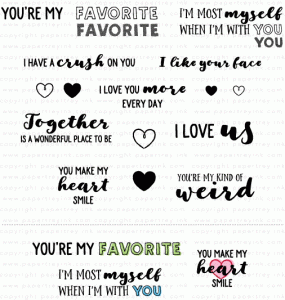 YOU'RE MY FAVORITE
FAVORITE
I'M MOST myself
WHEN I'M WITH YOU
YOU
I HAVE A crush ON YOU
I like your face
I LOVE YOU more
EVERY DAY
Together
IS A WONDERFUL PLACE TO BE
I LOVE us
YOU MAKE MY
heart
SMILE
YOU'RE MY KIND OF
weird
YOU'RE MY FAVORITE
I'M MOST myself
WHEN I'M WITH YOU
YOU MAKE MY
heart
SMILE